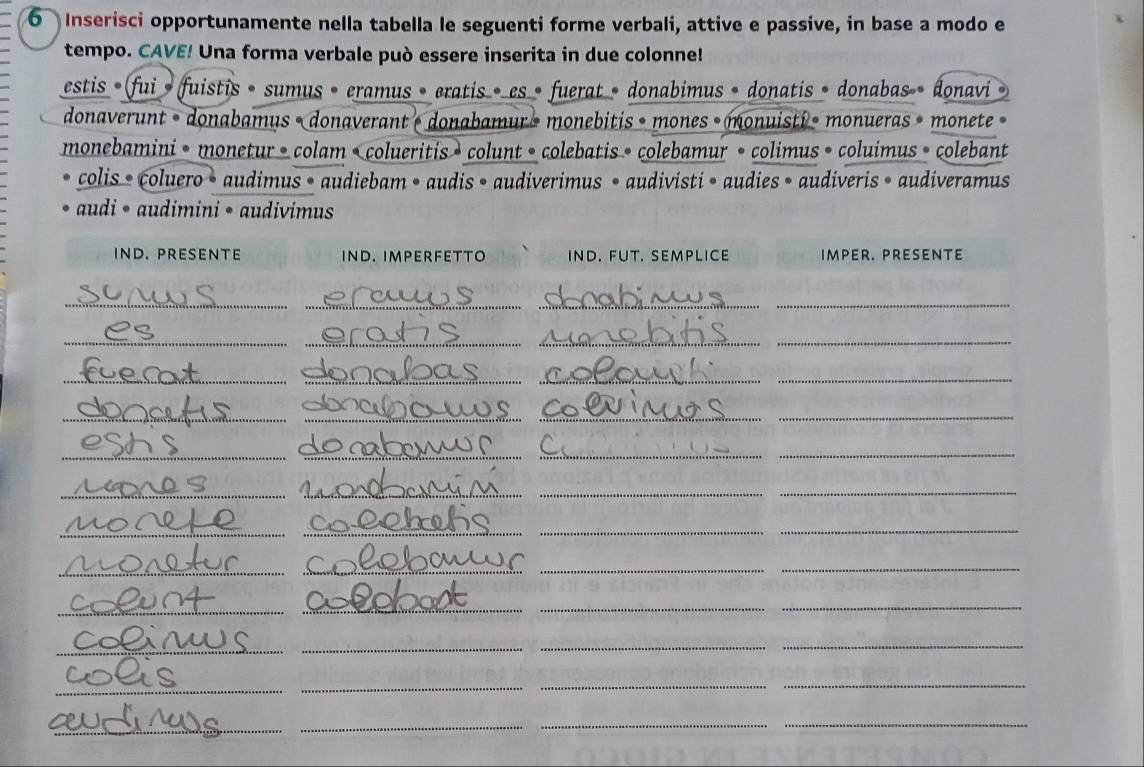 6 Inserisci opportunamente nella tabella le seguenti forme verbali, attive e passive, in base a modo e
tempo. CAVE! Una forma verbale può essere inserita in due colonne!
estis • fui • fuistis • sumus • eramus • eratis • es • fuerat • donabimus • donatis • donabas • donavi •
donaverunt • donabamus • donaverant • donabamur • monebitis • mones • monuisti • monueras • monete •
monebamini • monetur • colam • colueritis • colunt • colebatis • colebamur • colimus • coluimus • colebant
• colis • coluero • audimus • audiebam • audis • audiverimus • audivisti • audies • audiveris • audiveramus
• audi • audimini • audivimus
IND. PRESENTE IND. IMPERFETTO IND. FUT. SEMPLICE IMPER. PRESENTE
sumus eramus donabimus
es eratis monebitis
fuerat donabas
donatis donabamus coluimus
estis donabamur
mones
monete colebatis
monetur colebamur
colunt colebant
colimus
colis
audimus